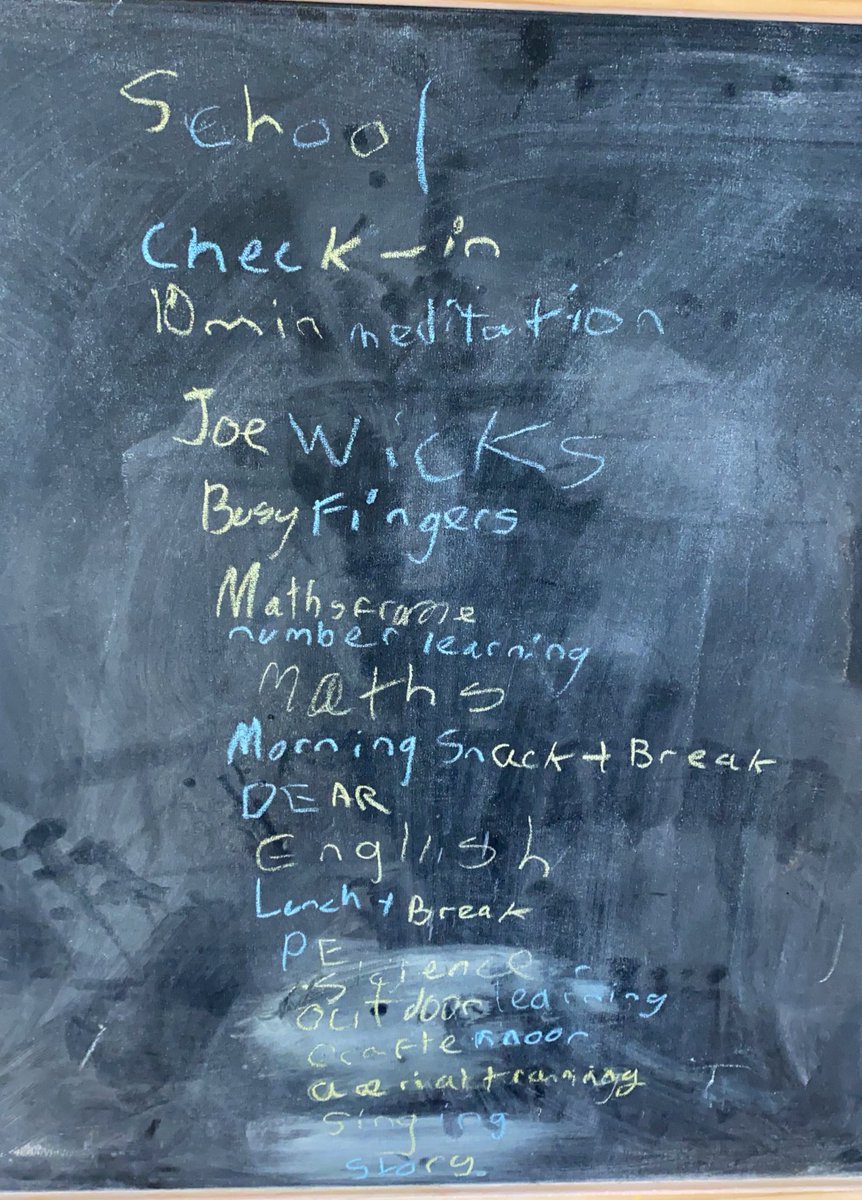 School
Check-in
10 min meditation
Joe Wicks
Busy Fingers
Mathsframe
number learning
Maths
Morning Snack + Break
DEAR
English
Lunch + Break
PE
Science
outdoor learning
aerial training
singing
story